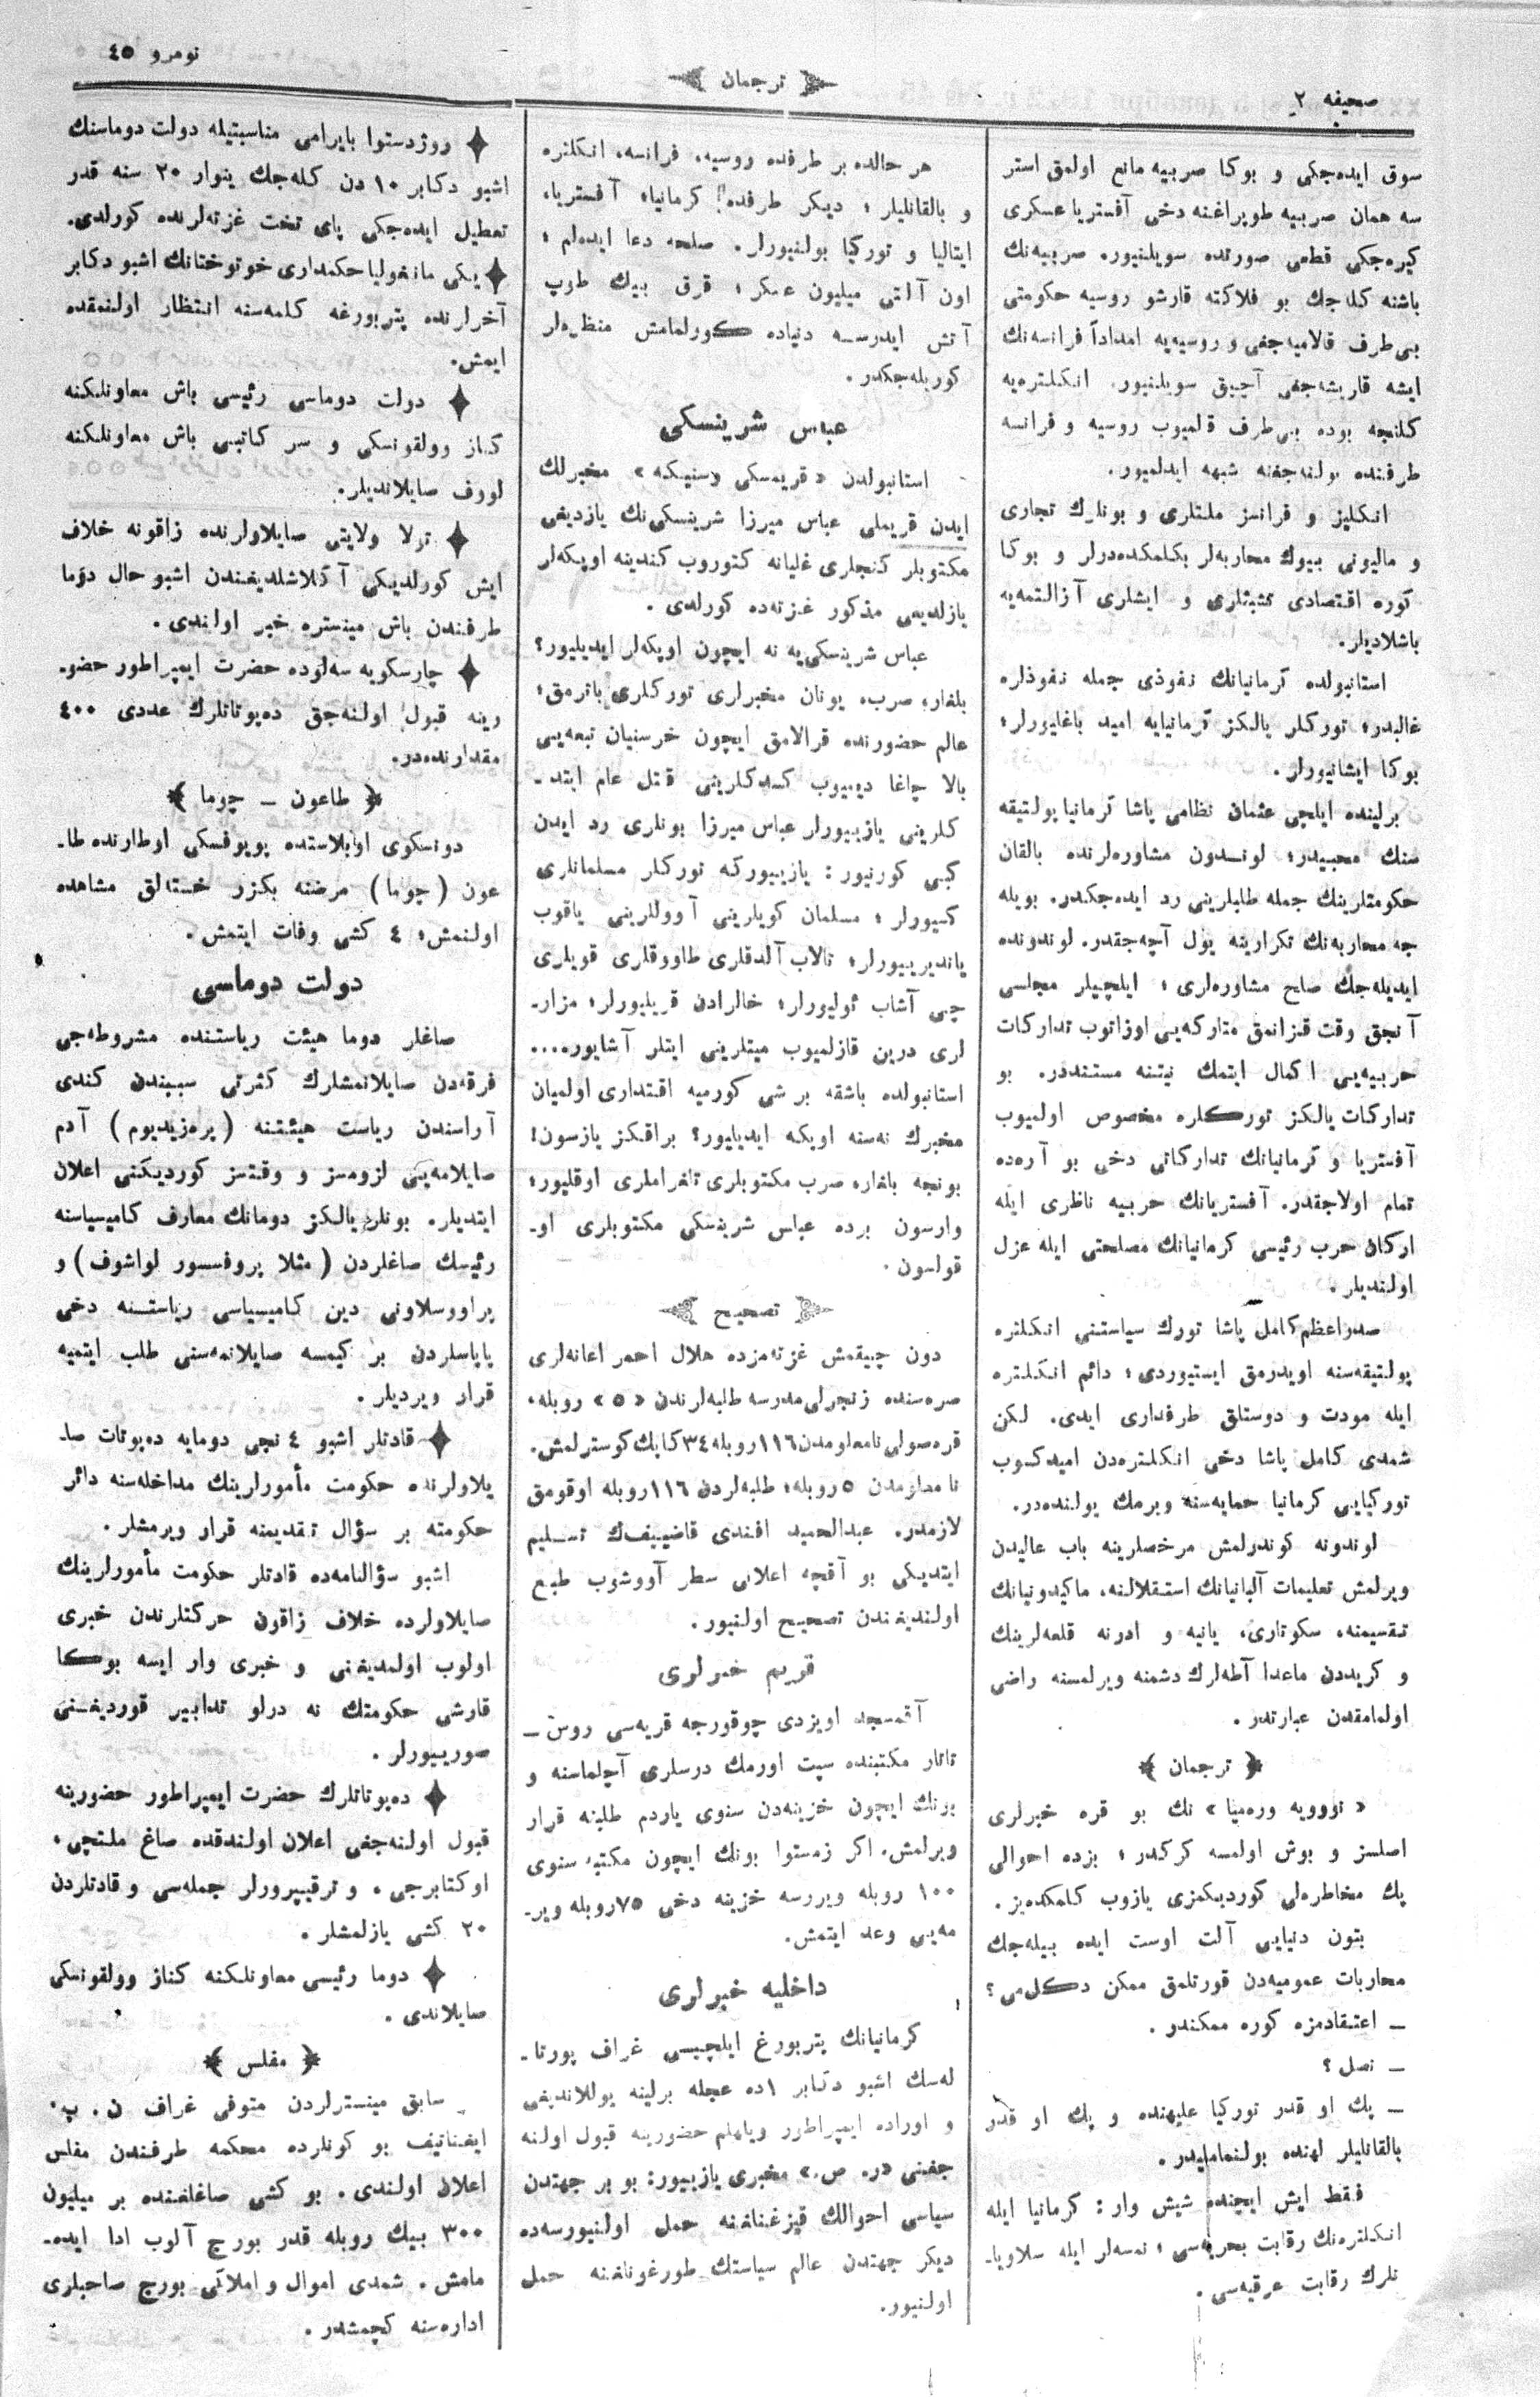 صحیفه ٢
ترجمان
نومرو ٤٥
سوق ایده‌جکی و بوکا صربیه مانع اولمق استر
سه همان صربیه طوپراغنه دخی آفستریا عسکری
کیره‌جکی قطعی صورتده سویلنیور. صربیه‌نك
باشنه کله‌جك بو فلاکته قارشو روسیه حکومتی
بی‌طرف قالامیه‌جغی و روسیه‌یه امداداً فرانسه‌نك
ایشه قاریشه‌جغی آچیق سویلنیور. انکلتره‌یه
کلنجه بوده بی‌طرف قلمیوب روسیه و فرانسه
طرفنده بولنه‌جغنه شبهه ایدلمیور.
انکلیز و فرانسز ملتلری و بونلرك تجاری
و مالیونی بیوك محاربه‌لر بکلمکده‌درلر و بوکا
کوره اقتصادی تشبثلری و ایشلری آزالتمه‌یه
باشلادیلر.
استانبولده کرمانیانك نفوذی جمله نفوذلره
غالبدر؛ تورکلر یالکز کرمانیایه امید باغلیورلر؛
بوکا ایشانیورلر.
برلینده ایلچی عثمان نظامی پاشا کرمانیا پولتیقه
سنك محبیدر؛ لوندون مشاوره‌لرنده بالقان
حکومتلرینك جمله طلبلرینی رد ایده‌جکدر. بویله
جه محاربه‌نك تکرارینه یول آچه‌جقدر. لوندونده
ایدیله‌جك صلح مشاوره‌لری؛ ایلچیلر مجلسی
آنجق وقت قزانمق متارکه‌یی اوزاتوب تدارکات
حربیه‌یی اکمال ایتمك نیتنه مستنددر. بو
تدارکات یالکز تورکلره مخصوص اولمیوب
آفستریا و کرمانیانك تدارکاتی دخی بو آره‌ده
تمام اولاجقدر. آفستریانك حربیه ناظری ایله
ارکان حرب رئیسی کرمانیانك مصلحتی ایله عزل
اولندیلر.
صدراعظم کامل پاشا تورك سیاستنی انکلتره
پولتیقه‌سنه اویدرمق ایستیوردی؛ دائم انکلتره
ایله مودت و دوستلق طرفداری ایدی. لکن
شمدی کامل پاشا دخی انکلتره‌دن امید کسوب
تورکیایی کرمانیا حمایه‌سنه ویرمك یولنده‌در.
لوندونه کوندرلمش مرخصلرینه باب عالیدن
ویرلمش تعلیمات آلبانیانك استقلالنه، ماکیدونیانك
تقسیمنه، سکوتاری، یانیه و ادرنه قلعه‌لرینك
و کریددن ماعدا آطه‌لرك دشمنه ویرلمسنه راضی
اولمامقدن عبارتدر.
﴿ ترجمان ﴾
« نوویه وره‌میا » نك بو قره خبرلری
اصلسز و بوش اولمسه کرکدر؛ بزده احوالی
پك مخاطره‌لی کوردیکمزی یازوب کلمکده‌یز.
بتون دنیایی آلت اوست ایده بیله‌جك
محاربات عمومیه‌دن قورتلمق ممکن دکل‌می؟
— اعتقادمزه کوره ممکندر.
— نصل؟
— پك او قدر تورکیا علیهنده و پك او قدر
بالقانلیلر لهنده بولنماملیدر.
فقط ایش ایچنده شیش وار: کرمانیا ایله
انکلتره‌نك رقابت بحریه‌سی؛ نمسه‌لر ایله سلاویا-
نلرك رقابت عرقیه‌سی.
هر حالده بر طرفده روسیه، فرانسه، انکلتره
و بالقانلیلر؛ دیکر طرفده! کرمانیا؛ آفستریا،
ایتالیا و تورکیا بولنیورلر. صلحه دعا ایده‌لم؛
اون آلتی میلیون عسکر؛ قرق بیك طوپ
آتش ایدرسه دنیاده کورلمامش منظره‌لر
کوریله‌جکدر.
عباس شرینسکی
استانبولدن «قریمسکی وسنیکه» مخبرلك
ایدن قریملی عباس میرزا شرینسکی‌نك یازدیغی
مکتوبلر کنجلری غلیانه کتوروب کندینه اوپکه‌لر
یازلدیغی مذکور غزته‌ده کورلدی.
عباس شرینسکی‌یه نه ایچون اوپکه‌لر ایدیلیور؟
بلغار، صرب، یونان مخبرلری تورکلری باترمق؛
عالم حضورنده قرالامق ایچون خرستیان تبعه‌یی
بالا چاغا دیمیوب کسدکلرینی قتل عام ایتد-
کلرینی یازییورلر عباس میرزا بونلری رد ایدن
کبی کورنیور: یازییورکه تورکلر مسلمانلری
کسیورلر؛ مسلمان کویلرینی آووللرینی یاقوب
یاندیرییورلر؛ تالاب آلدقلری طاووقلری قویلری
چی آشاب ئولیورلر؛ خالرادن قریلیورلر؛ مزار-
لری درین قازلمیوب میتلرینی ایتلر آشایور....
استانبولده باشقه بر شی کورمیه اقتداری اولمیان
مخبرك نه‌سنه اوپکه ایدیلیور؟ براقکز یازسون!
بونجه بلغار، صرب مکتوبلری تلغراملری اوقلیور؛
وارسون برده عباس شرینسکی مکتوبلری او-
قولسون.
تصحیح
دون چیقمش غزته‌مزده هلال احمر اعانه‌لری
صره‌سنده زنجرلی مدرسه طلبه‌لرندن «٥» روبله،
قره‌صولی نامعلومدن ١١٦ روبله ٣٤ کاپك کوسترلمش.
نامعلومدن ٥ روبله؛ طلبه‌لردن ١١٦ روبله اوقومق
لازمدر. عبدالحمید افندی قاضییف‌ك تسلیم
ایتدیکی بو آقچه اعلانی سطر آووشوب طبع
اولندیغندن تصحیح اولنیور.
قریم خبرلری
آقمسجد اویزدی چوقورجه قریه‌سی روس —
تاتار مکتبنده سپت اورمك درسلری آچلماسنه و
بونك ایچون خزینه‌دن سنوی یاردم طلبنه قرار
ویرلمش. اکر زمستوا بونك ایچون مکتبه سنوی
١٠٠ روبله ویررسه خزینه دخی ٧٥ روبله ویر-
مه‌یی وعد ایتمش.
داخلیه خبرلری
کرمانیانك پتربورغ ایلچیسی غراف پورتا-
له‌سك اشبو دکابر ١ده عجله برلینه یوللاندیغی
و اوراده ایمپراطور ویلهلم حضورینه قبول اولنه
جغنی «ر. ص.» مخبری یازییور: بو بر جهتدن
سیاسی احوالك قیزغنلغنه حمل اولنیورسه‌ده
دیکر جهتدن عالم سیاستك طورغونلغنه حمل
اولنیور.
روژدستوا بایرامی مناسبتیله دولت دوماسنك
اشبو دکابر ١٠ دن کله‌جك ینوار ٢٠ سنه قدر
تعطیل ایده‌جکی پای تخت غزته‌لرنده کورلدی.
یکی مانغولیا حکمداری خوتوختانك اشبو دکابر
آخرلرنده پتربورغه کلمه‌سنه انتظار اولنمقده
ایمش.
دولت دوماسی رئیسی باش معاونلکنه
کناز وولقونسکی و سر کاتبی باش معاونلکنه
لووف صایلاندیلر.
تولا ولایتی صایلاولرنده زاقونه خلاف
ایش کورلدیکی آکلاشلدیغندن اشبو حال دوما
طرفندن باش مینستره خبر اولندی.
چارسکویه سه‌لوده حضرت ایمپراطور حضو-
رینه قبول اولنه‌جق ده‌پوتاتلرك عددی ٤٠٠
مقدارنده‌در.
﴿ طاعون — چوما ﴾
دونسکوی اوبلاستده بویوفسکی اوطارنده طا-
عون (چوما) مرضنه بکزر خسته‌لق مشاهده
اولنمش؛ ٤ کشی وفات ایتمش.
دولت دوماسی
صاغلر دوما هیئت ریاستنده مشروطه‌جی
فرقه‌دن صایلانمشلرك کثرتی سببندن کندی
آراسندن ریاست هیئتنه (پره‌زیدیوم) آدم
صایلامه‌یی لزومسز و وقتسز کوردیکنی اعلان
ایتدیلر. بونلر یالکز دومانك معارف کامیسیاسنه
رئیسك صاغلردن (مثلا پروفسسور لواشوف) و
پراووسلاونی دین کامیسیاسی ریاستنه دخی
پاپاسلردن بر کیمسه صایلانمه‌سنی طلب ایتمیه
قرار ویردیلر.
قادتلر اشبو ٤ نجی دومایه ده‌پوتات صا-
یلاولرنده حکومت مأمورلرینك مداخله‌سنه دائر
حکومته بر سؤال تقدیمنه قرار ویرمشلر.
اشبو سؤالنامه‌ده قادتلر حکومت مأمورلرینك
صایلاولرده خلاف زاقون حرکتلرندن خبری
اولوب اولمدیغنی و خبری وار ایسه بوکا
قارشی حکومتك نه درلو تدابیر قوردیغنی
صورییورلر.
ده‌پوتاتلرك حضرت ایمپراطور حضورینه
قبول اولنه‌جغی اعلان اولندقده صاغ ملتچی،
اوکتابرجی، و ترقیپرورلر جمله‌سی و قادتلردن
٢٠ کشی یازلمشلر.
دوما رئیسی معاونلکنه کناز وولقونسکی
صایلاندی.
﴿ مفلس ﴾
سابق مینسترلردن متوفی غراف ن. پ.
ایغناتیف بو کونلرده محکمه طرفندن مفلس
اعلان اولندی. بو کشی صاغلغنده بر میلیون
٣٠٠ بیك روبله قدر بورج آلوب ادا ایده-
مامش. شمدی اموال و املاکی بورج صاحبلری
اداره‌سنه کچمشدر.